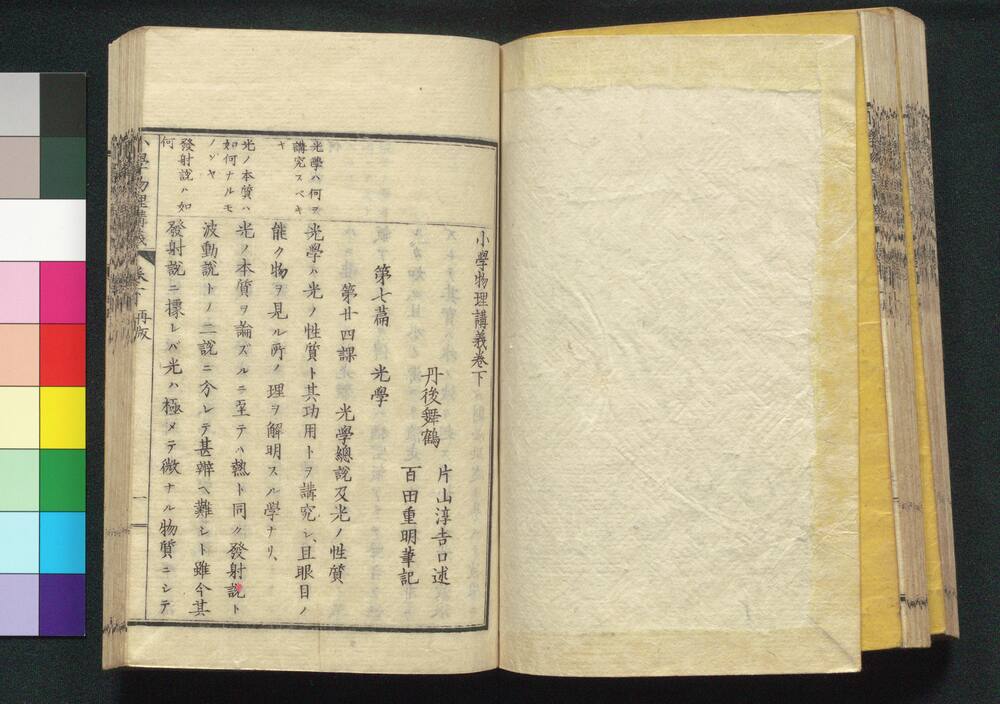 小學物理講義卷下
丹後舞鶴
片山淳吉口述
百田重明筆記
第七篇 光學
第廿四課 光學總說及光ノ性質
光學ハ光ノ性質ト其功用トヲ講究シ、且眼目ノ
能ク物ヲ見ル所ノ理ヲ解明スル學ナリ、
光ノ本質ヲ論ズルニ至テハ熱ト同ク發射說ト
波動說トノ二說ニ分レテ甚辨ヘ難シト雖今其
發射說ニ據レバ光ハ極メテ微ナル物質ニシテ
光學ハ何ヲ
講究スベキ
ヤ
光ノ本質ハ
如何ナルモ
ノゾヤ
發射說ハ如
何
小學物理講義 卷下 再版 一